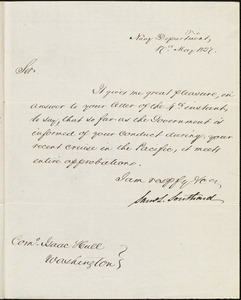 Navy Department,
17th May 1827.
Sir,
It gives me great pleasure, in
answer to your letter of the 4th instant,
to say, that so far as the Government is
informed of your conduct during your
recent cruise in the Pacific, it meets
entire approbation.
I am respfly Yours,
Saml. L. Southard
Comr. Isaac Hull
Washington